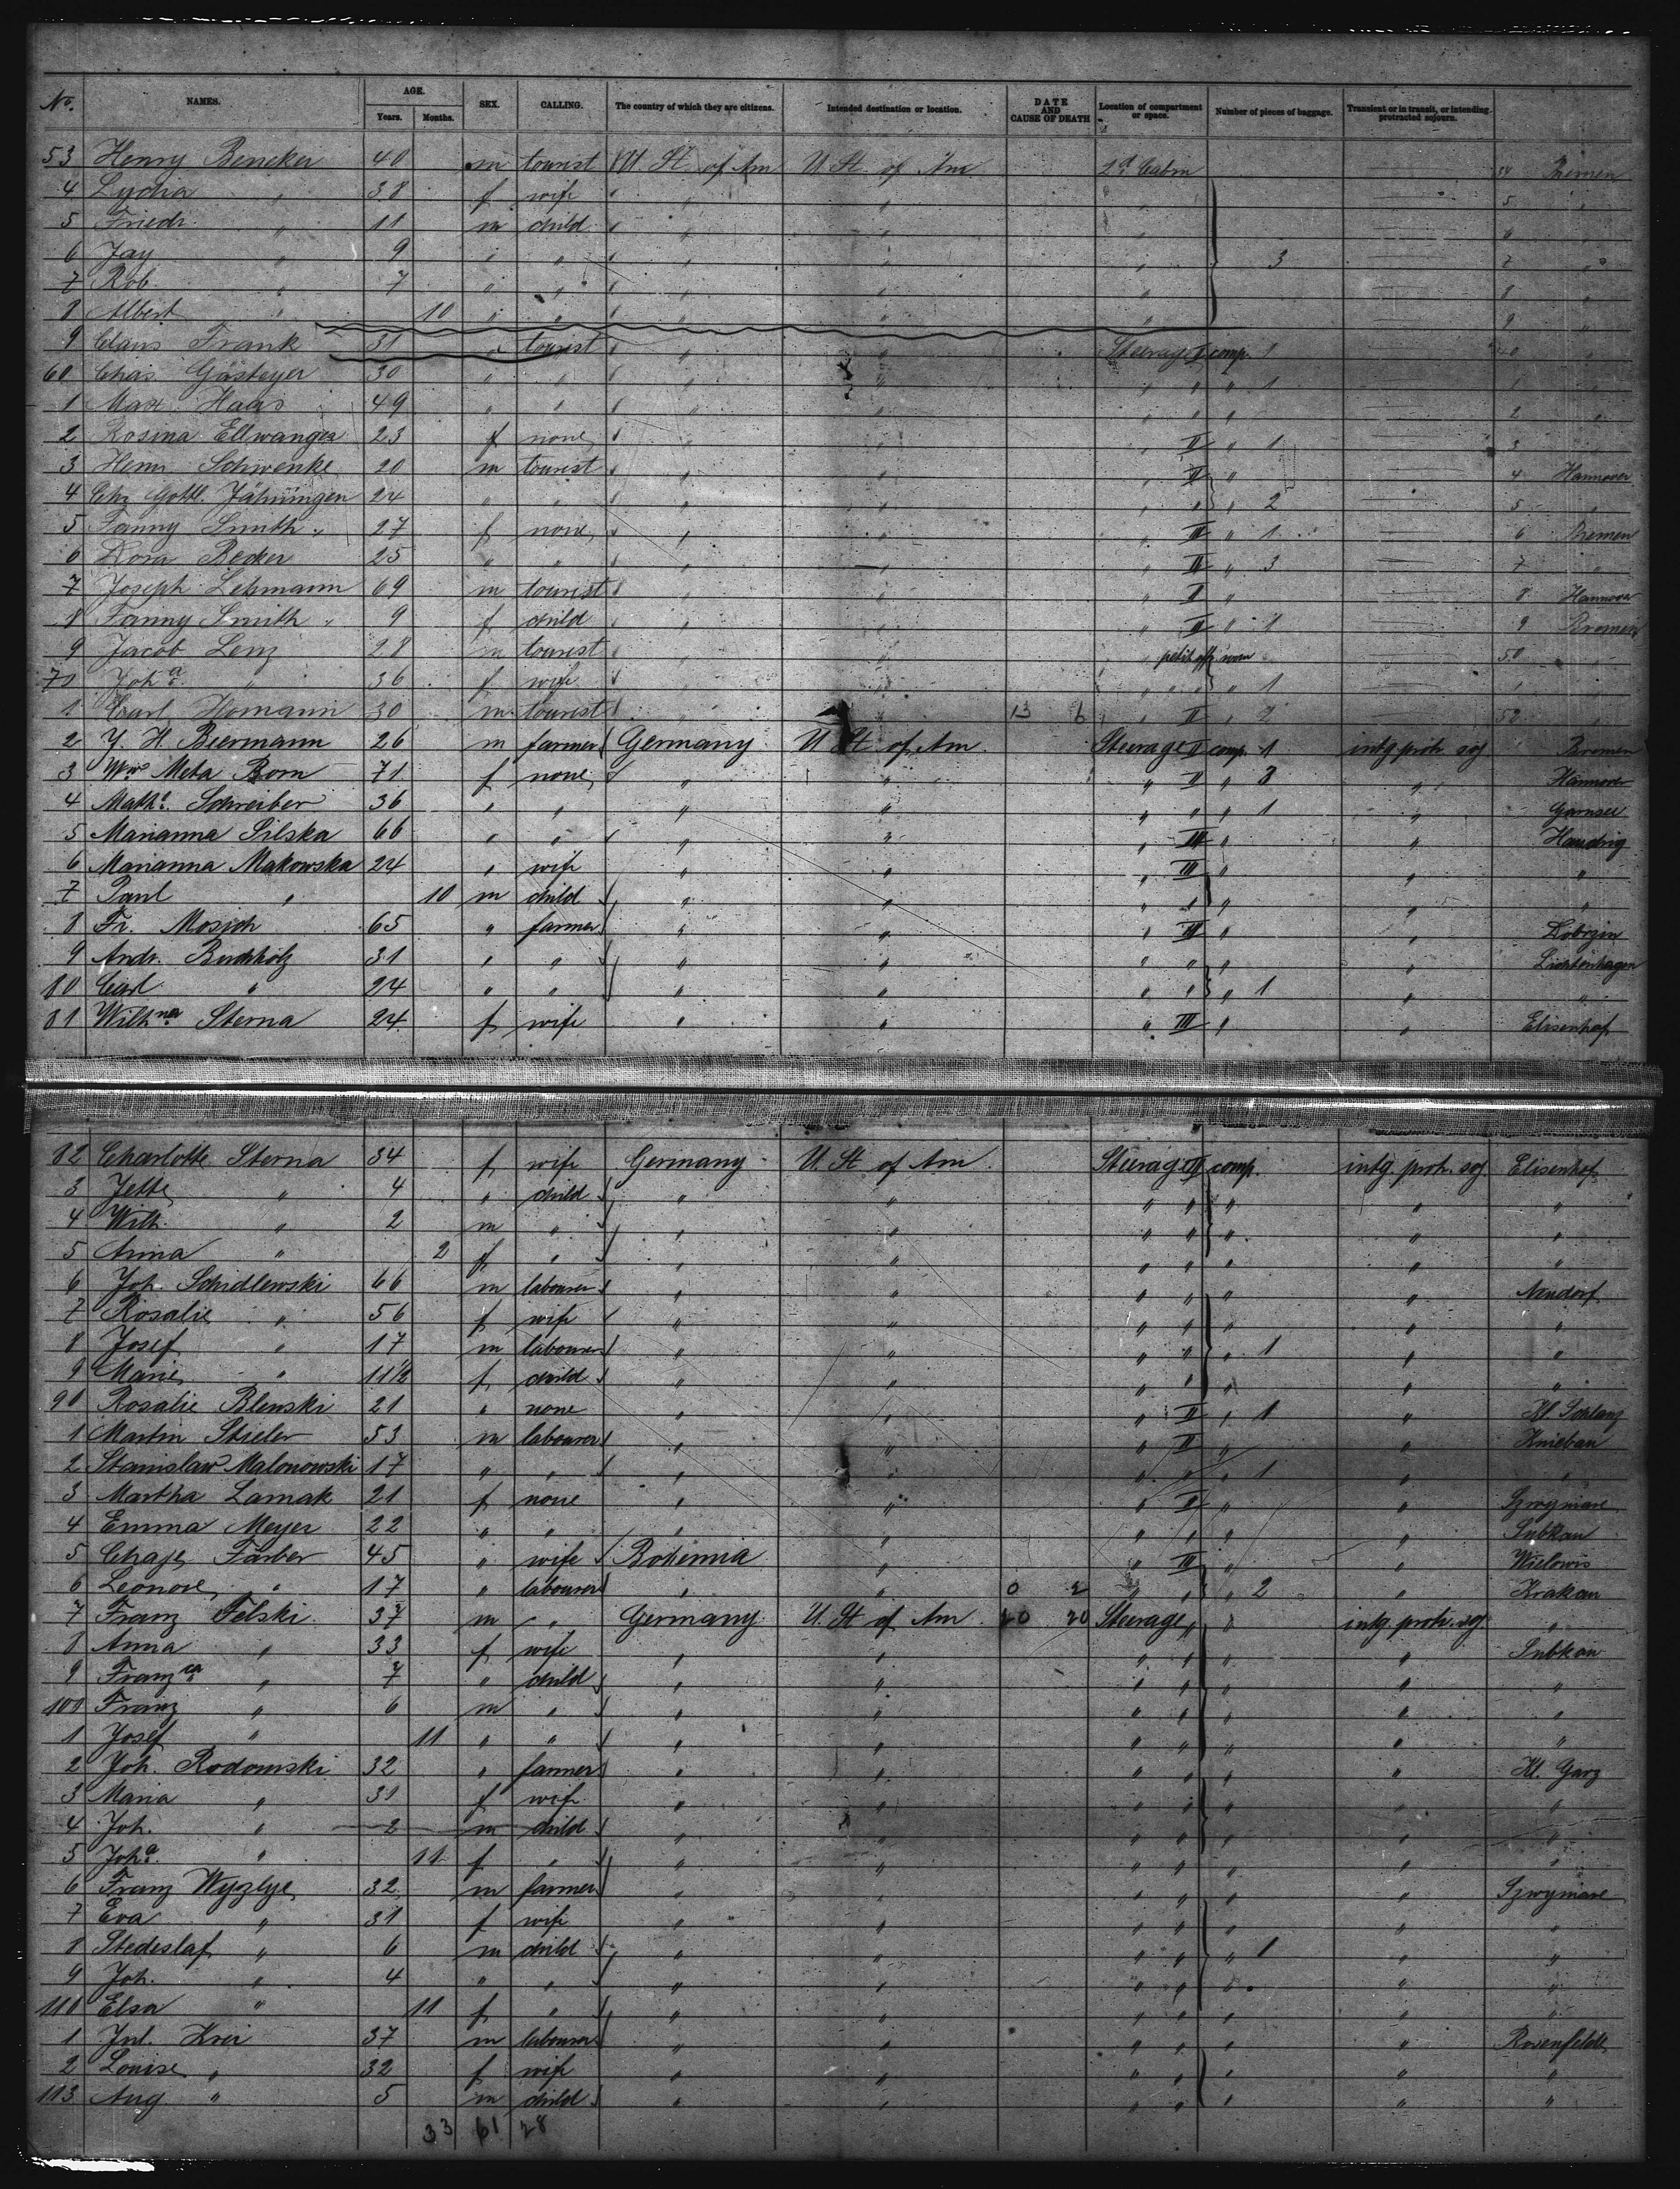 No. NAMES. AGE. Years. Months. SEX. CALLING. The country of which they are citizens. Intended destination or location. DATE AND CAUSE OF DEATH Location of compartment or space. Number of pieces of baggage. Transient or in transit, or intending protracted sojourn.
53 Henry Beneker 40 m tourist U. St. of Am U. St. of Am 2d Cabin 34 Bremen
4 Lydia " 38 f wife " " " 5 "
5 Friedr. " 11 m child " " " 6 "
6 Jay " 9 " " " " " 3 7 "
7 Rob. " 7 " " " " " 8 "
8 Albert " 10 " " " " " 9 "
9 Claus Frank 31 " tourist " " Steerage II comp. 1 40 "
60 Chas. Gästeyer 30 " " " " " " " 1 1 "
1 Max Haas 49 " " " " " " " 2 "
2 Rosina Ellwanger 23 f none " " " II " 1 3 "
3 Henr. Schwenke 20 m tourist " " " II " 4 Hannover
4 Chr. Gottl. Jähningen 24 " " " " " " " 2 5 "
5 Fanny Smith 27 f none " " " III " 1 6 Bremen
6 Dora Becker 25 " " " " " II " 3 7 "
7 Joseph Lehmann 69 m tourist " " " II " 8 Hannover
8 Fanny Smith 9 f child " " " II " 1 9 Bremen
9 Jacob Lenz 28 m tourist " " " petit off room 50 "
70 Joha. " 36 f wife " " " " " 1 1 "
1 Carl Homann 30 m tourist " " 13 6 " II " 2 52 "
2 Y. H. Biermann 26 m farmer Germany U St of Am. Steerage II comp. 1 intg proh soj Bremen
3 Wwe Meta Born 71 f none " " " II " 3 " Hannover
4 Mathe. Schreiber 36 " " " " " " " 1 " Garnsee
5 Marianna Silska 66 " " " " " III " "
6 Marianna Makowska 24 " wife " " " III " " "
7 Paul " 10 m child " " " " " " "
8 Fr. Mosich 65 " farmer " " " III " " Dobrzin
9 Andr. Buchholz 31 " " " " " " " " Lichtenhagen
80 Carl " 24 " " " " " " " 1 " "
81 Wilhna Sterna 24 f wife " " " III " " Elisenhof
82 Charlotte Sterna 34 f wife Germany U. St of Am. Steerage III comp. intg. proh. soj. Elisenhof
3 Jette " 4 " child " " " " " " "
4 Wilh. " 2 m " " " " " " " "
5 Anna " 2 f " " " " " " "
6 Joh. Schidlewski 66 m labourer " " " " " " Neudorf
7 Rosalie " 56 f wife " " " " " " "
8 Josef " 17 m labourer " " " " " 1 " "
9 Marie " 11½ f child " " " " " " "
90 Rosalie Blenski 21 " none " " " II " 1 " Kl. Schlanz
1 Martin Stieler 53 m labourer " " " II " " Kniebau
2 Stanislaw Malonowski 17 " " " " " " " 1 " "
3 Martha Lamak 21 f none " " " II " "
4 Emma Meyer 22 " " " " " " " " Subkau
5 Chaje Färber 45 " wife Bohemia " " III " " Wielowis
6 Leonore " 17 " labourer " " 0 2 " " " 2 " Krakau
7 Franz Felski 37 m " Germany U. St of Am 20 20 Steerage " " intg. proh. soj "
8 Anna " 33 f wife " " " " " " Subkau
9 Franzca " 7 " child " " " " " " "
100 Franz " 6 m " " " " " " " "
1 Josef " 11 " " " " " " " " "
2 Joh. Rodomski 32 " farmer " " " " " " Kl. Garz
3 Maria " 31 f wife " " " " " " "
4 Joh. " 2 m child " " " " " " "
5 Joha. " 11 f " " " " " " " "
6 Franz Wyzlye 32 m farmer " " " " " "
7 Eva " 31 f wife " " " " " " "
8 Stedeslaf " 6 m child " " " " " 1 " "
9 Joh. " 4 " " " " " " " " "
110 Elsa " 11 f " " " " " " " "
1 Jul. Krei 37 m labourer " " " " " " Rosenfelde
2 Louise " 32 f wife " " " " " " "
113 Aug " 5 m child " " " " " " "
33 61 28